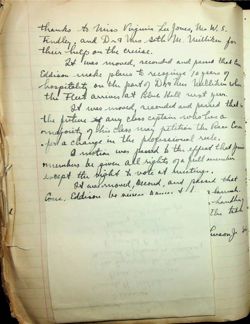 thanks to Miss Virginia Lee Jones, Mr. W. S.
Findley, and Dr & Mrs Seth M. Milliken for
their help on the cruise.
It was moved, seconded and passed that Com.
Eddison make plans to recognize 10 years of
hospitality on the part of Dr & Mrs Milliken when
the Fleet arrives at Blue Hill next year.
It was moved, seconded and passed that in
the future any class captain who has a
majority of his class may petition the Race Com.
for a change in the professional rule.
A motion was passed to the effect that junior
members be given all rights of a full member
except the right to vote at meetings.
It was moved, second, and passed that
Com. Eddison
handling
The